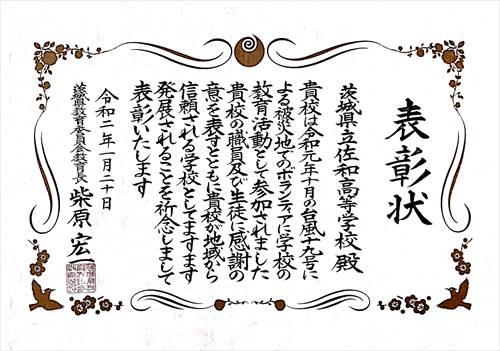 表彰状
茨城県立佐和高等学校 殿
貴校は令和元年十月の台風十九号に
よる被災地でのボランティアに学校の
教育活動として参加されました
貴校の職員及び生徒に感謝の
意を表すとともに貴校が地域から
信頼される学校としてますます
発展されることを祈念しまして
表彰いたします
令和二年一月二十日
茨城県教育委員会教育長 柴原宏一